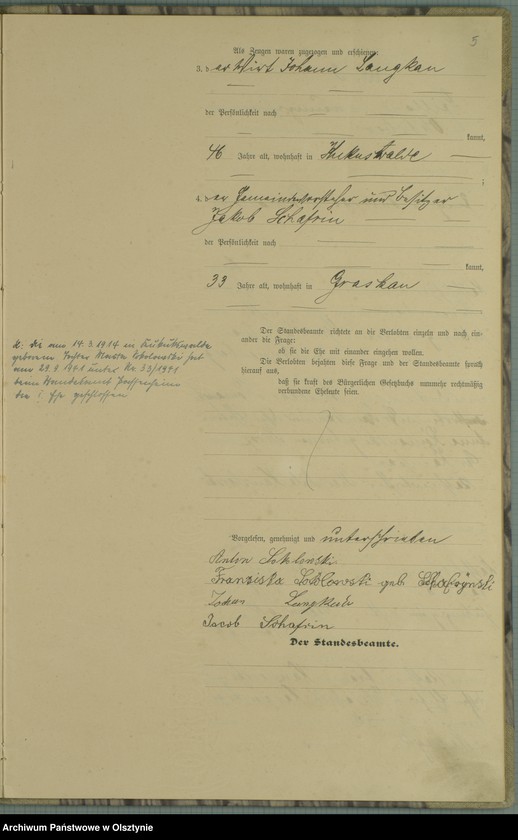 5
Als Zeugen waren zugezogen und erschienen:
3. der Wirt Johann Langkau
der Persönlichkeit nach
kannt,
46 Jahre alt, wohnhaft in Kukukswalde
;
4. der Gemeindevorsteher und Besitzer
Jakob Schafrin
der Persönlichkeit nach
kannt,
33 Jahre alt, wohnhaft in Graskau
Der Standesbeamte richtete an die Verlobten einzeln und nach einander die Frage:
ob sie die Ehe mit einander eingehen wollen.
Die Verlobten bejahten diese Frage und der Standesbeamte sprach hierauf aus,
daß sie kraft des Bürgerlichen Gesetzbuchs nunmehr rechtmäßig
verbundene Eheleute seien.
Die am 14.3.1914 in Kukukswalde
geborene Tochter Sokolowski hat
am 29.9.1941 unter Nr 33/1941
beim Standesamt Passenheim
die Ehe geschlossen
Vorgelesen, genehmigt und unterschrieben
Anton Soklowski
Franziska Soklowski geb.
Johan Langkau
Jacob Schafrin
Der Standesbeamte.
Archiwum Państwowe w Olsztynie